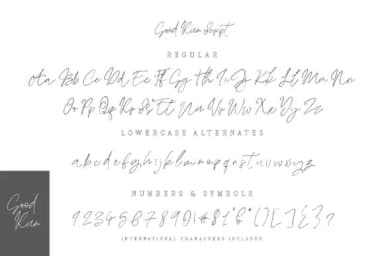 Good Run Script
REGULAR
Aa Bb Cc Dd Ee Ff Gg Hh Ii Jj Kk Ll Mm Nn
Oo Pp Qq Rr Ss Tt Uu Vv Ww Xx Yy Zz
LOWERCASE ALTERNATES
a b c d e f g h i j k l m n o p q r s t u v w x y z
NUMBERS & SYMBOLS
INTERNATIONAL CHARACTERS INCLUDED
Good
Run